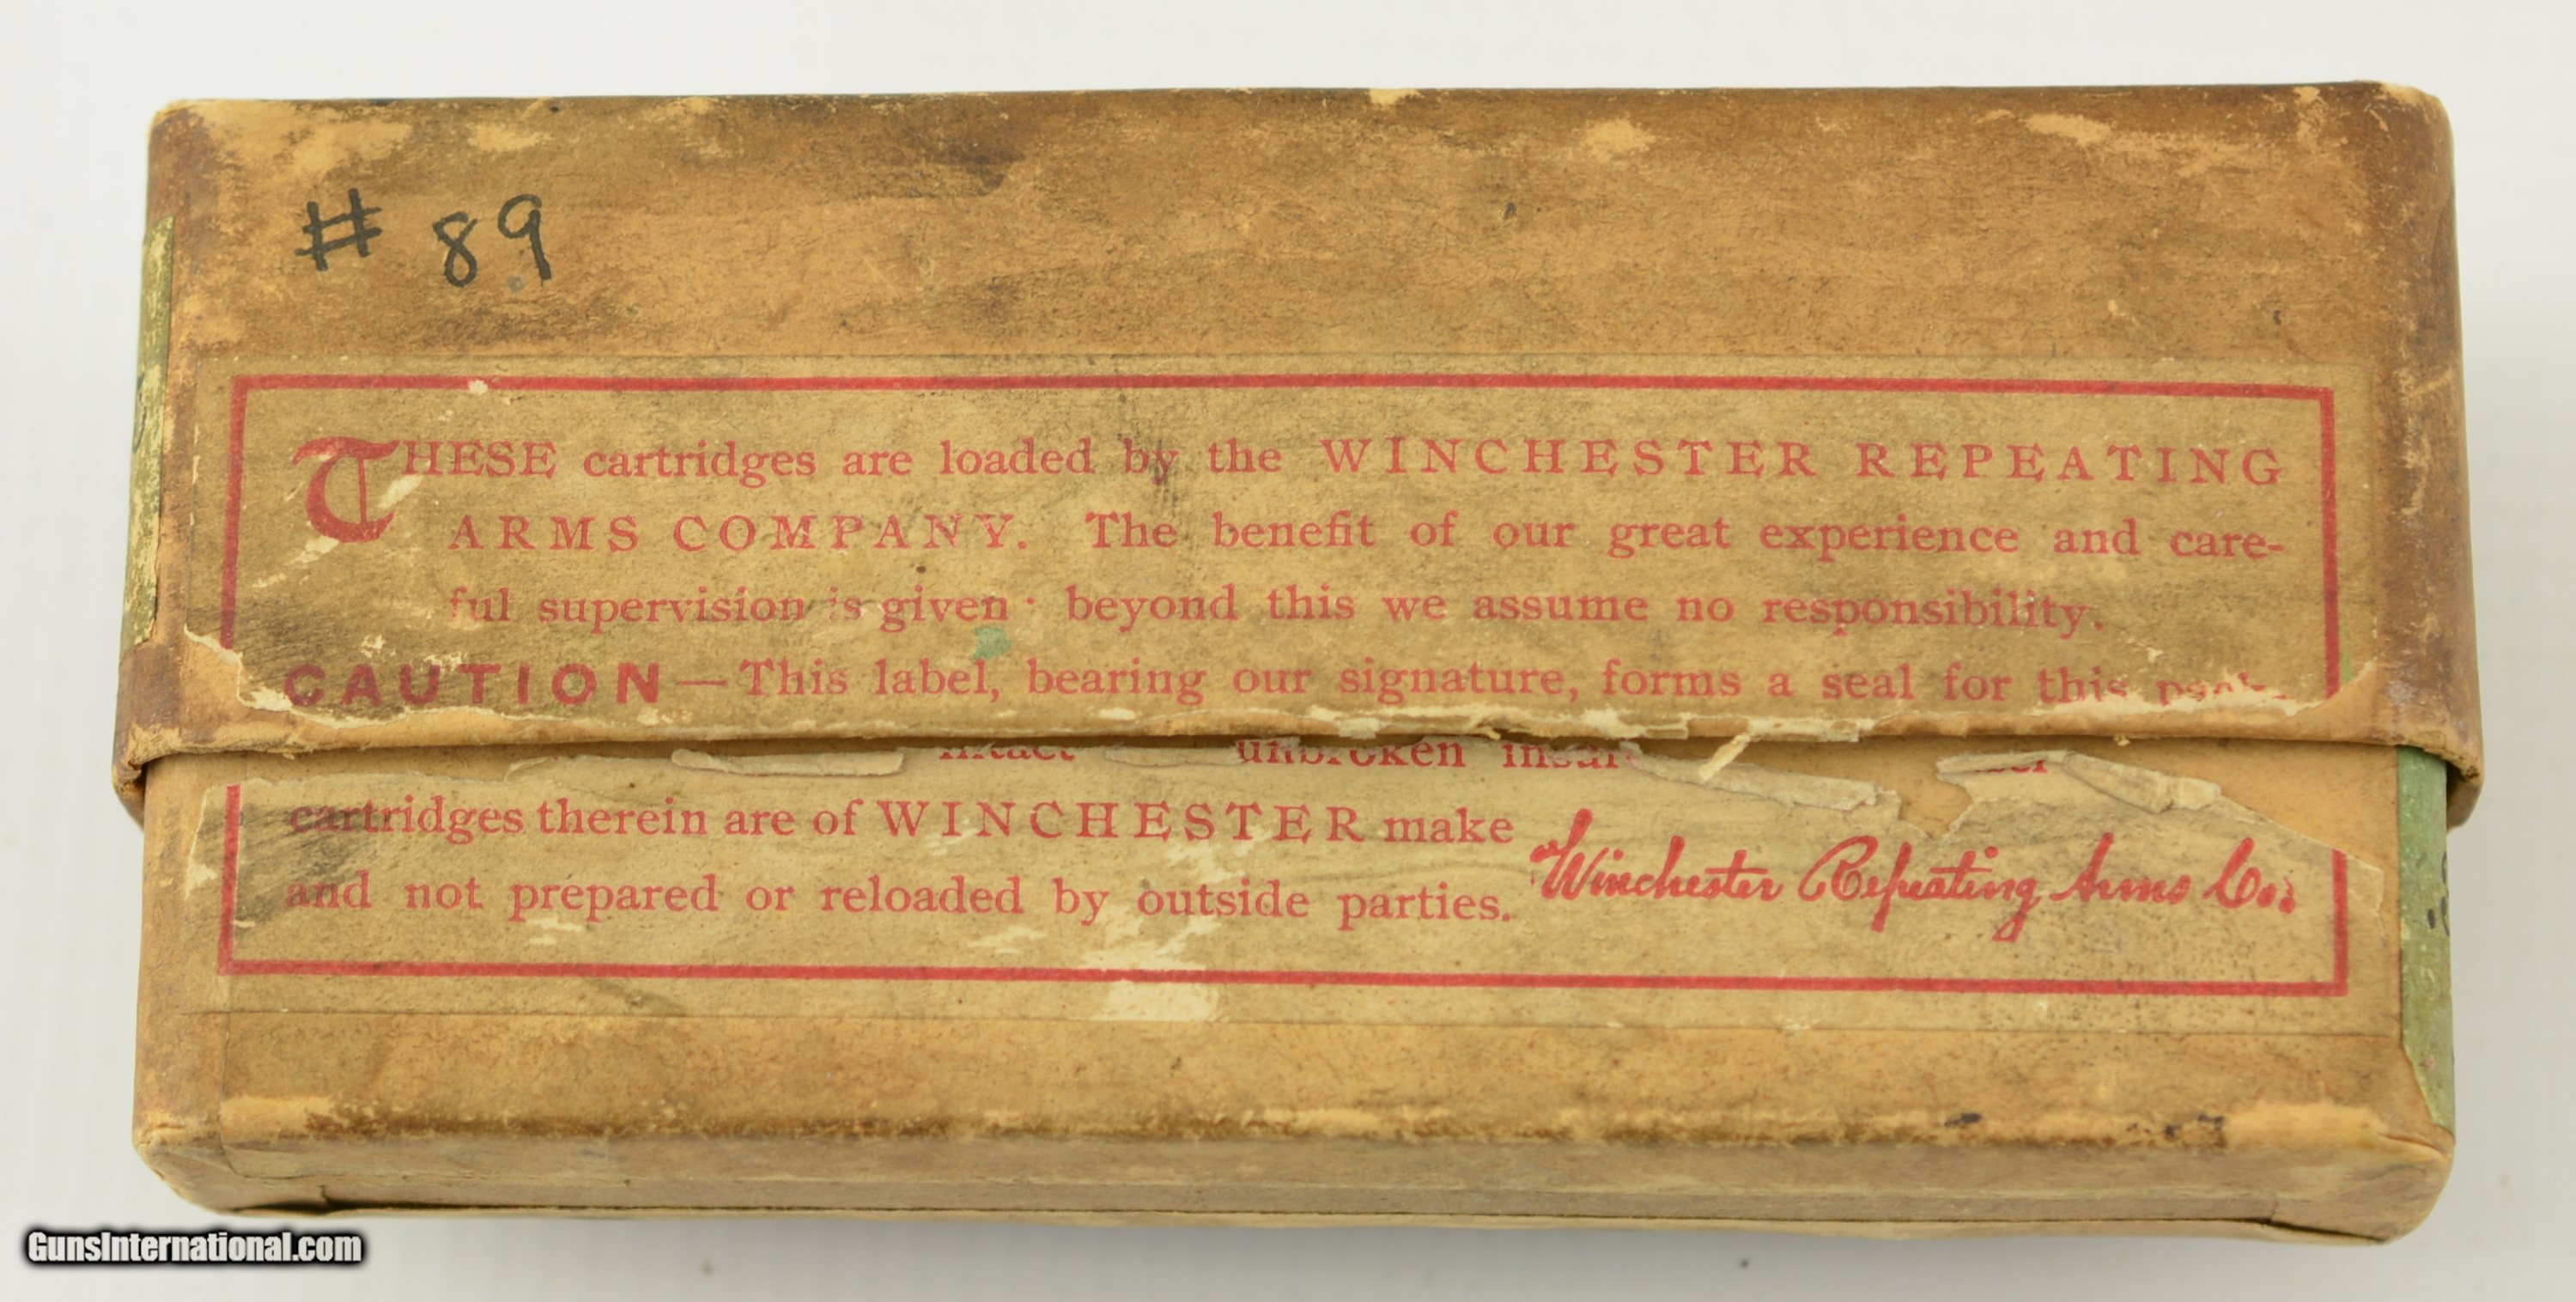 # 89
THESE cartridges are loaded by the WINCHESTER REPEATING
ARMS COMPANY. The benefit of our great experience and care-
ful supervision is given; beyond this we assume no responsibility.
CAUTION—This label, bearing our signature, forms a seal for this pack-
intact unbroken
cartridges therein are of WINCHESTER make
and not prepared or reloaded by outside parties.
Winchester Repeating Arms Co.
GunsInternational.com